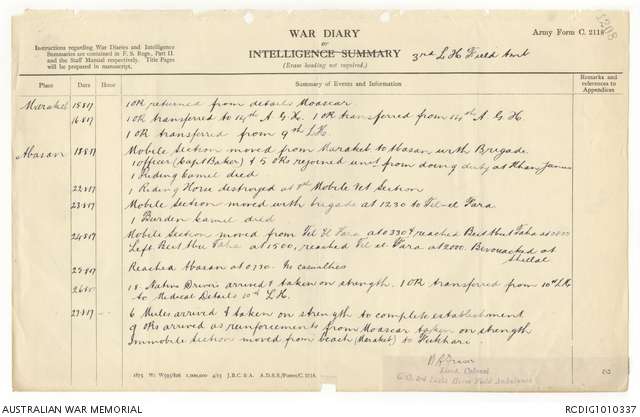 1208
WAR DIARY
or
INTELLIGENCE SUMMARY
(Erase heading not required.)
Army Form C. 2118.
Instructions regarding War Diaries and Intelligence
Summaries are contained in F. S. Regs., Part II.
and the Staff Manual respectively. Title Pages
will be prepared in manuscript.
3rd L H Field Amb
Place Date Hour Summary of Events and Information Remarks and references to Appendices
Marakeb 15.8.17 1 OR returned from details Moascar.
16.8.17 1 OR transferred to 14th A G H. 1 OR transferred from 14th A G H
1 OR transferred from 9th L.H.
Abasan 18.8.17 Mobile Section moved from Marakeb to Abasan with Brigade
1 officer (Capt Baker) & 5 ORs rejoined unit from doing duty at Khan Junus
1 Riding Camel died
22.8.17 1 Riding Horse destroyed at Mobile Vet Section
23.8.17 Mobile Section moved with brigade at 1230 to Tel-el-Fara
1 Burden Camel died
24.8.17 Mobile Section moved from Tel El Fara at 0330 & reached Besthul Taha at
Left Besthu Taha at 1500, reached Tel el Fara at 2000. Bivouacked at
Shellal
25.8.17 Reached Abasan at 0730. No casualties
26.8.17 18 Native Drivers arrived & taken on strength. 1 OR transferred from 10th L H
to Medical Details 10th L.H.
27.8.17 6 Mules arrived & taken on strength to complete establishment
9 ORs arrived as reinforcements from Moascar taken on strength
Immobile Section moved from beach (Marakeb) to Fukhari.
Lieut. Colonel
Light Horse Field Ambulance
1875 Wt. W593/826 1,000,000 4/15 J.B.C. & A. A.D.S.S./Forms/C. 2118.
AUSTRALIAN WAR MEMORIAL
RCDIG1010337